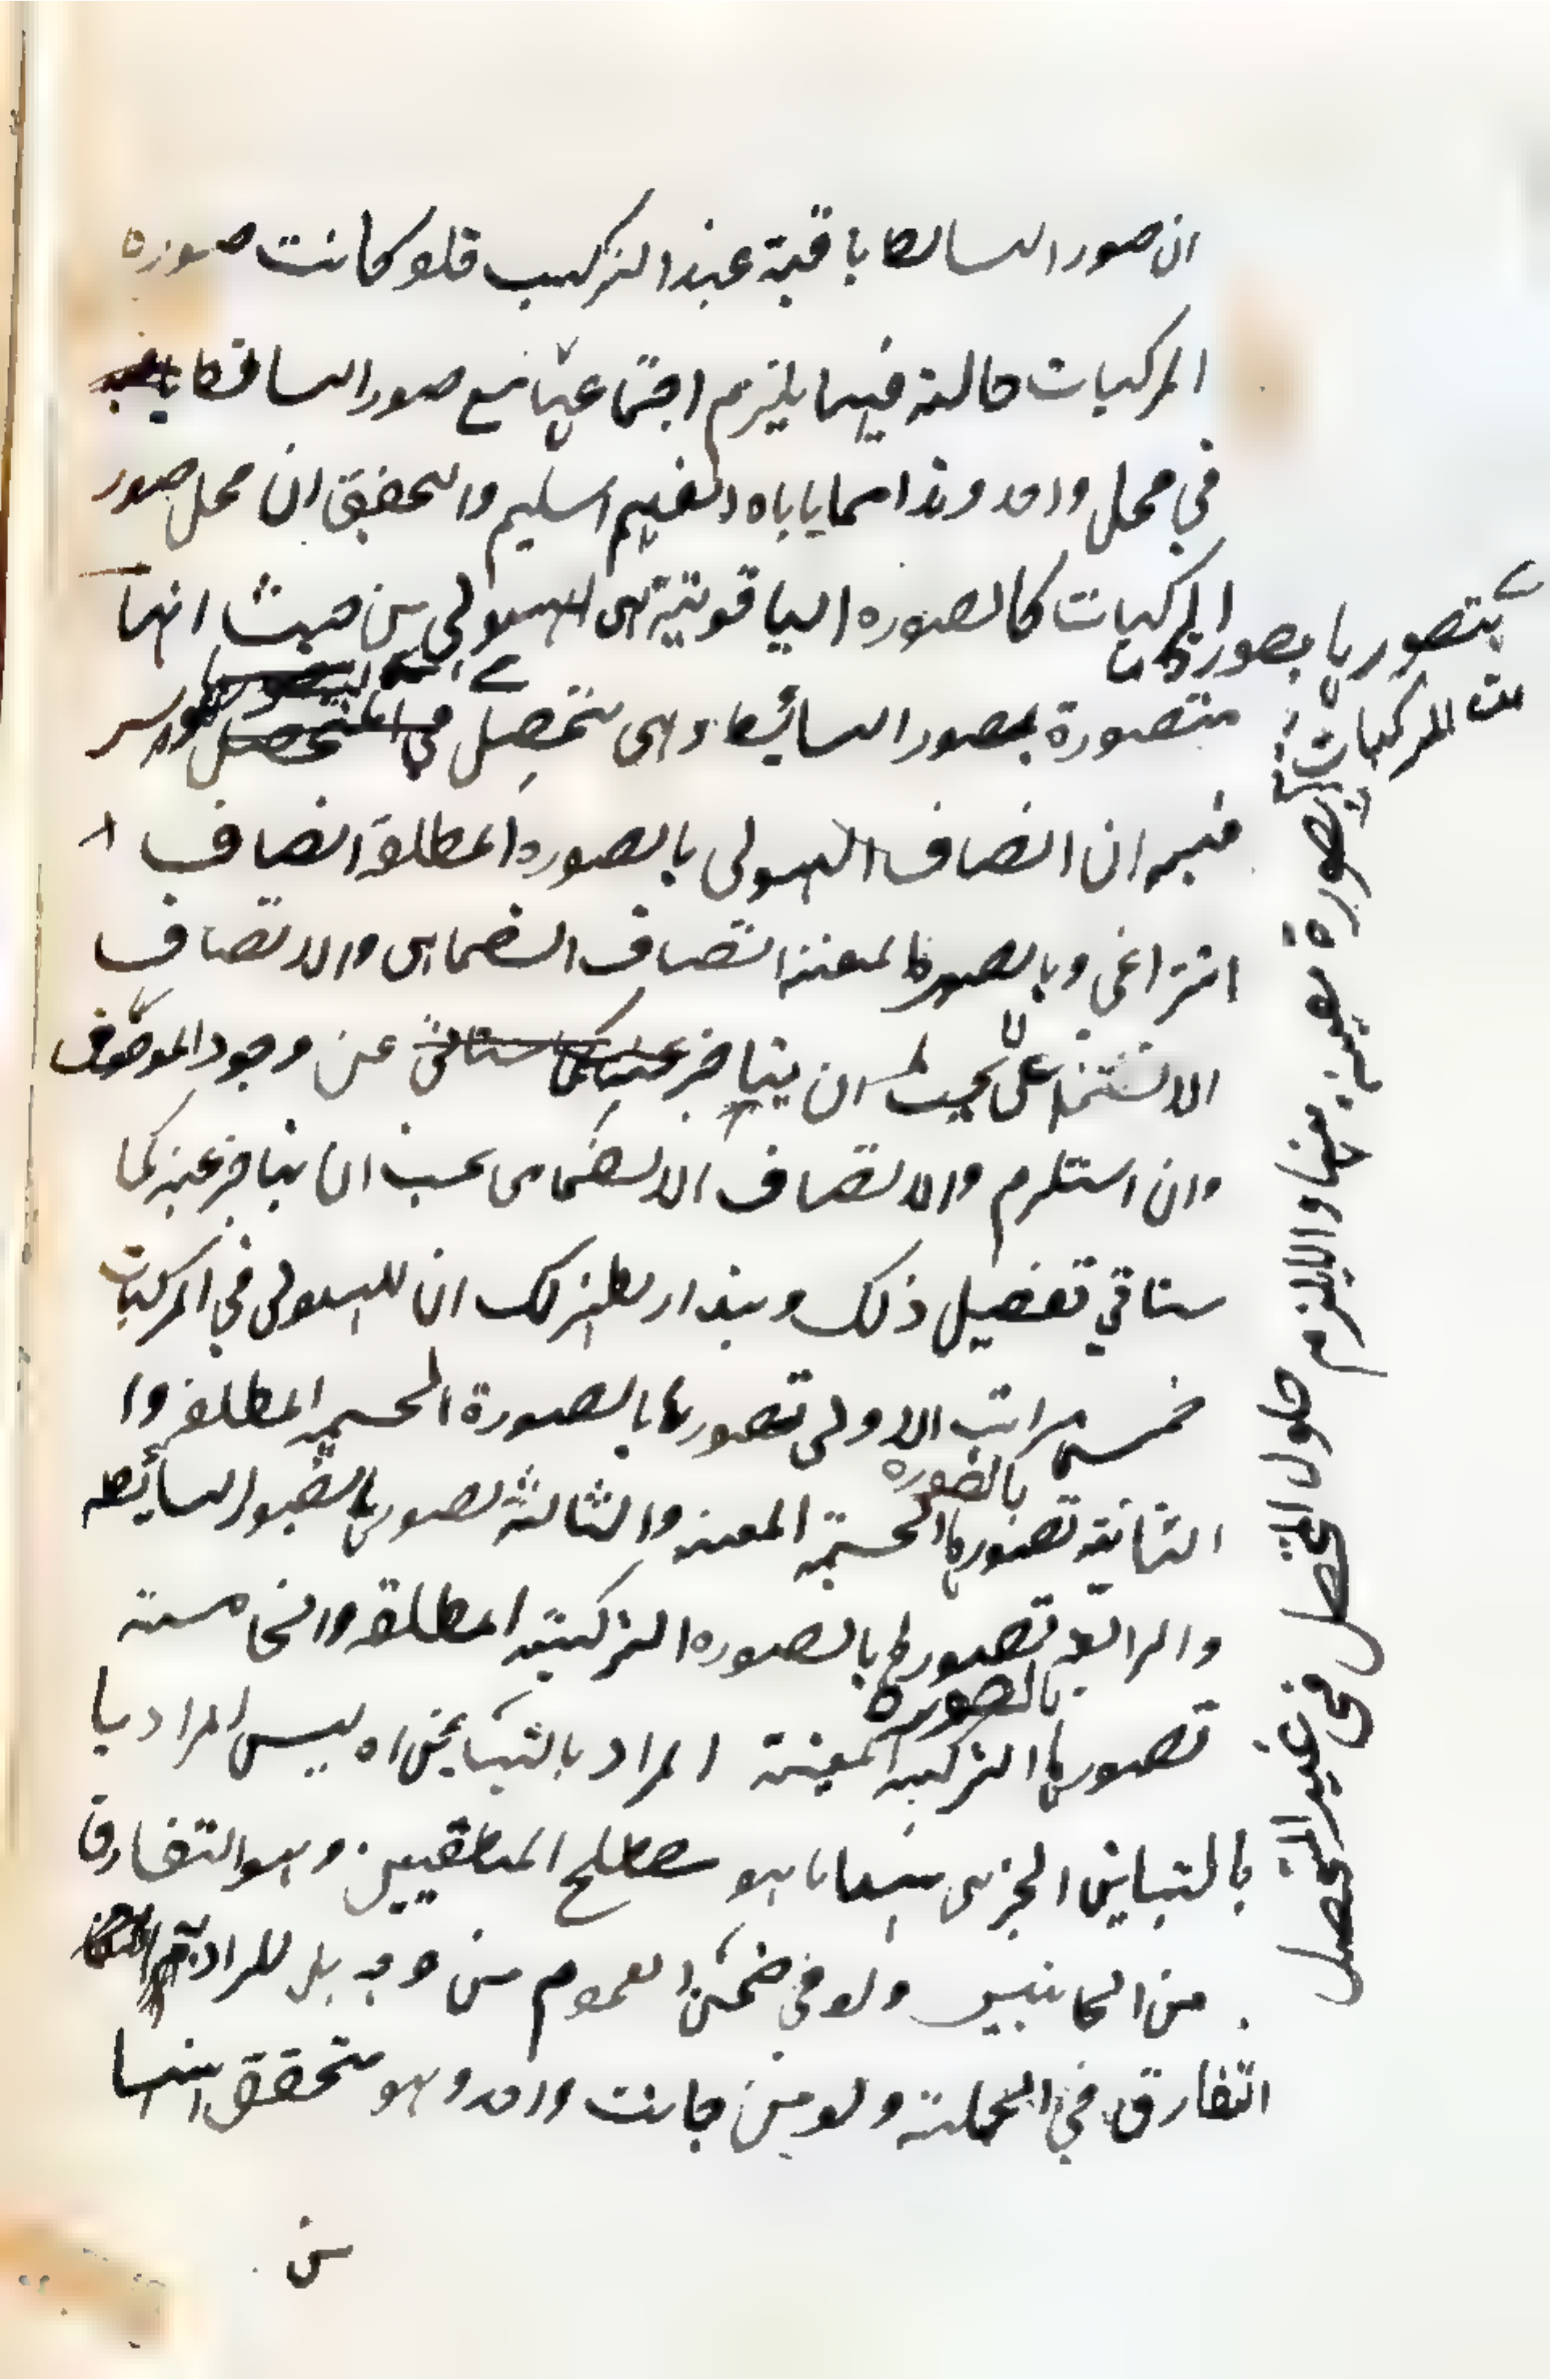 ان صور البسائط باقية عند التركيب فلو كانت صورة
المركبات حالة فيها يلزم اجتماعها مع صور البسائط
في محل واحد وهذا مما ياباه الفهم السليم والتحقيق ان محل صور
المركبات كالصورة الياقوتية هي الهيولى من حيث انها
متصورة بصور البسائط وهي متحصل
فيه ان اتصاف الهيولى بالصورة المطلقة اتصاف
انتزاعي وبالصورة المعينة اتصاف انضمامي والاتصاف
الانتزاعي يجب ان يتاخر عن وجود الموصوف
وان استلزم والاتصاف الانضمامي يجب ان يتاخر عنه كما
ستاتي تفصيل ذلك وبهذا ان للهيولى في المركبات
خمس مراتب الاولى تصورها بالصورة الجسمية المطلقة وا
الثانية تصورها بالصورة الجسمية المعينة والثالثة تصورها بالصور البسائطه
والرابعة تصورها بالصورة التركيبية المطلقة والخامسة
تصورها بالصورة التركيبية المعينة المراد بالتباين اه ليس المراد
بالتباين الجزئي ههنا ما هو مصطلح المنطقيين وهو التفارق
من الجانبين ولو في ضمن العموم من وجه بل المراد به
التفارق في الجملة ولو من جانب واحد وهو متحقق ههنا
من
بتصورها بصور
من المركبات الصورة معينة منها والا يلزم حلول المتحصل في غير المتحصل